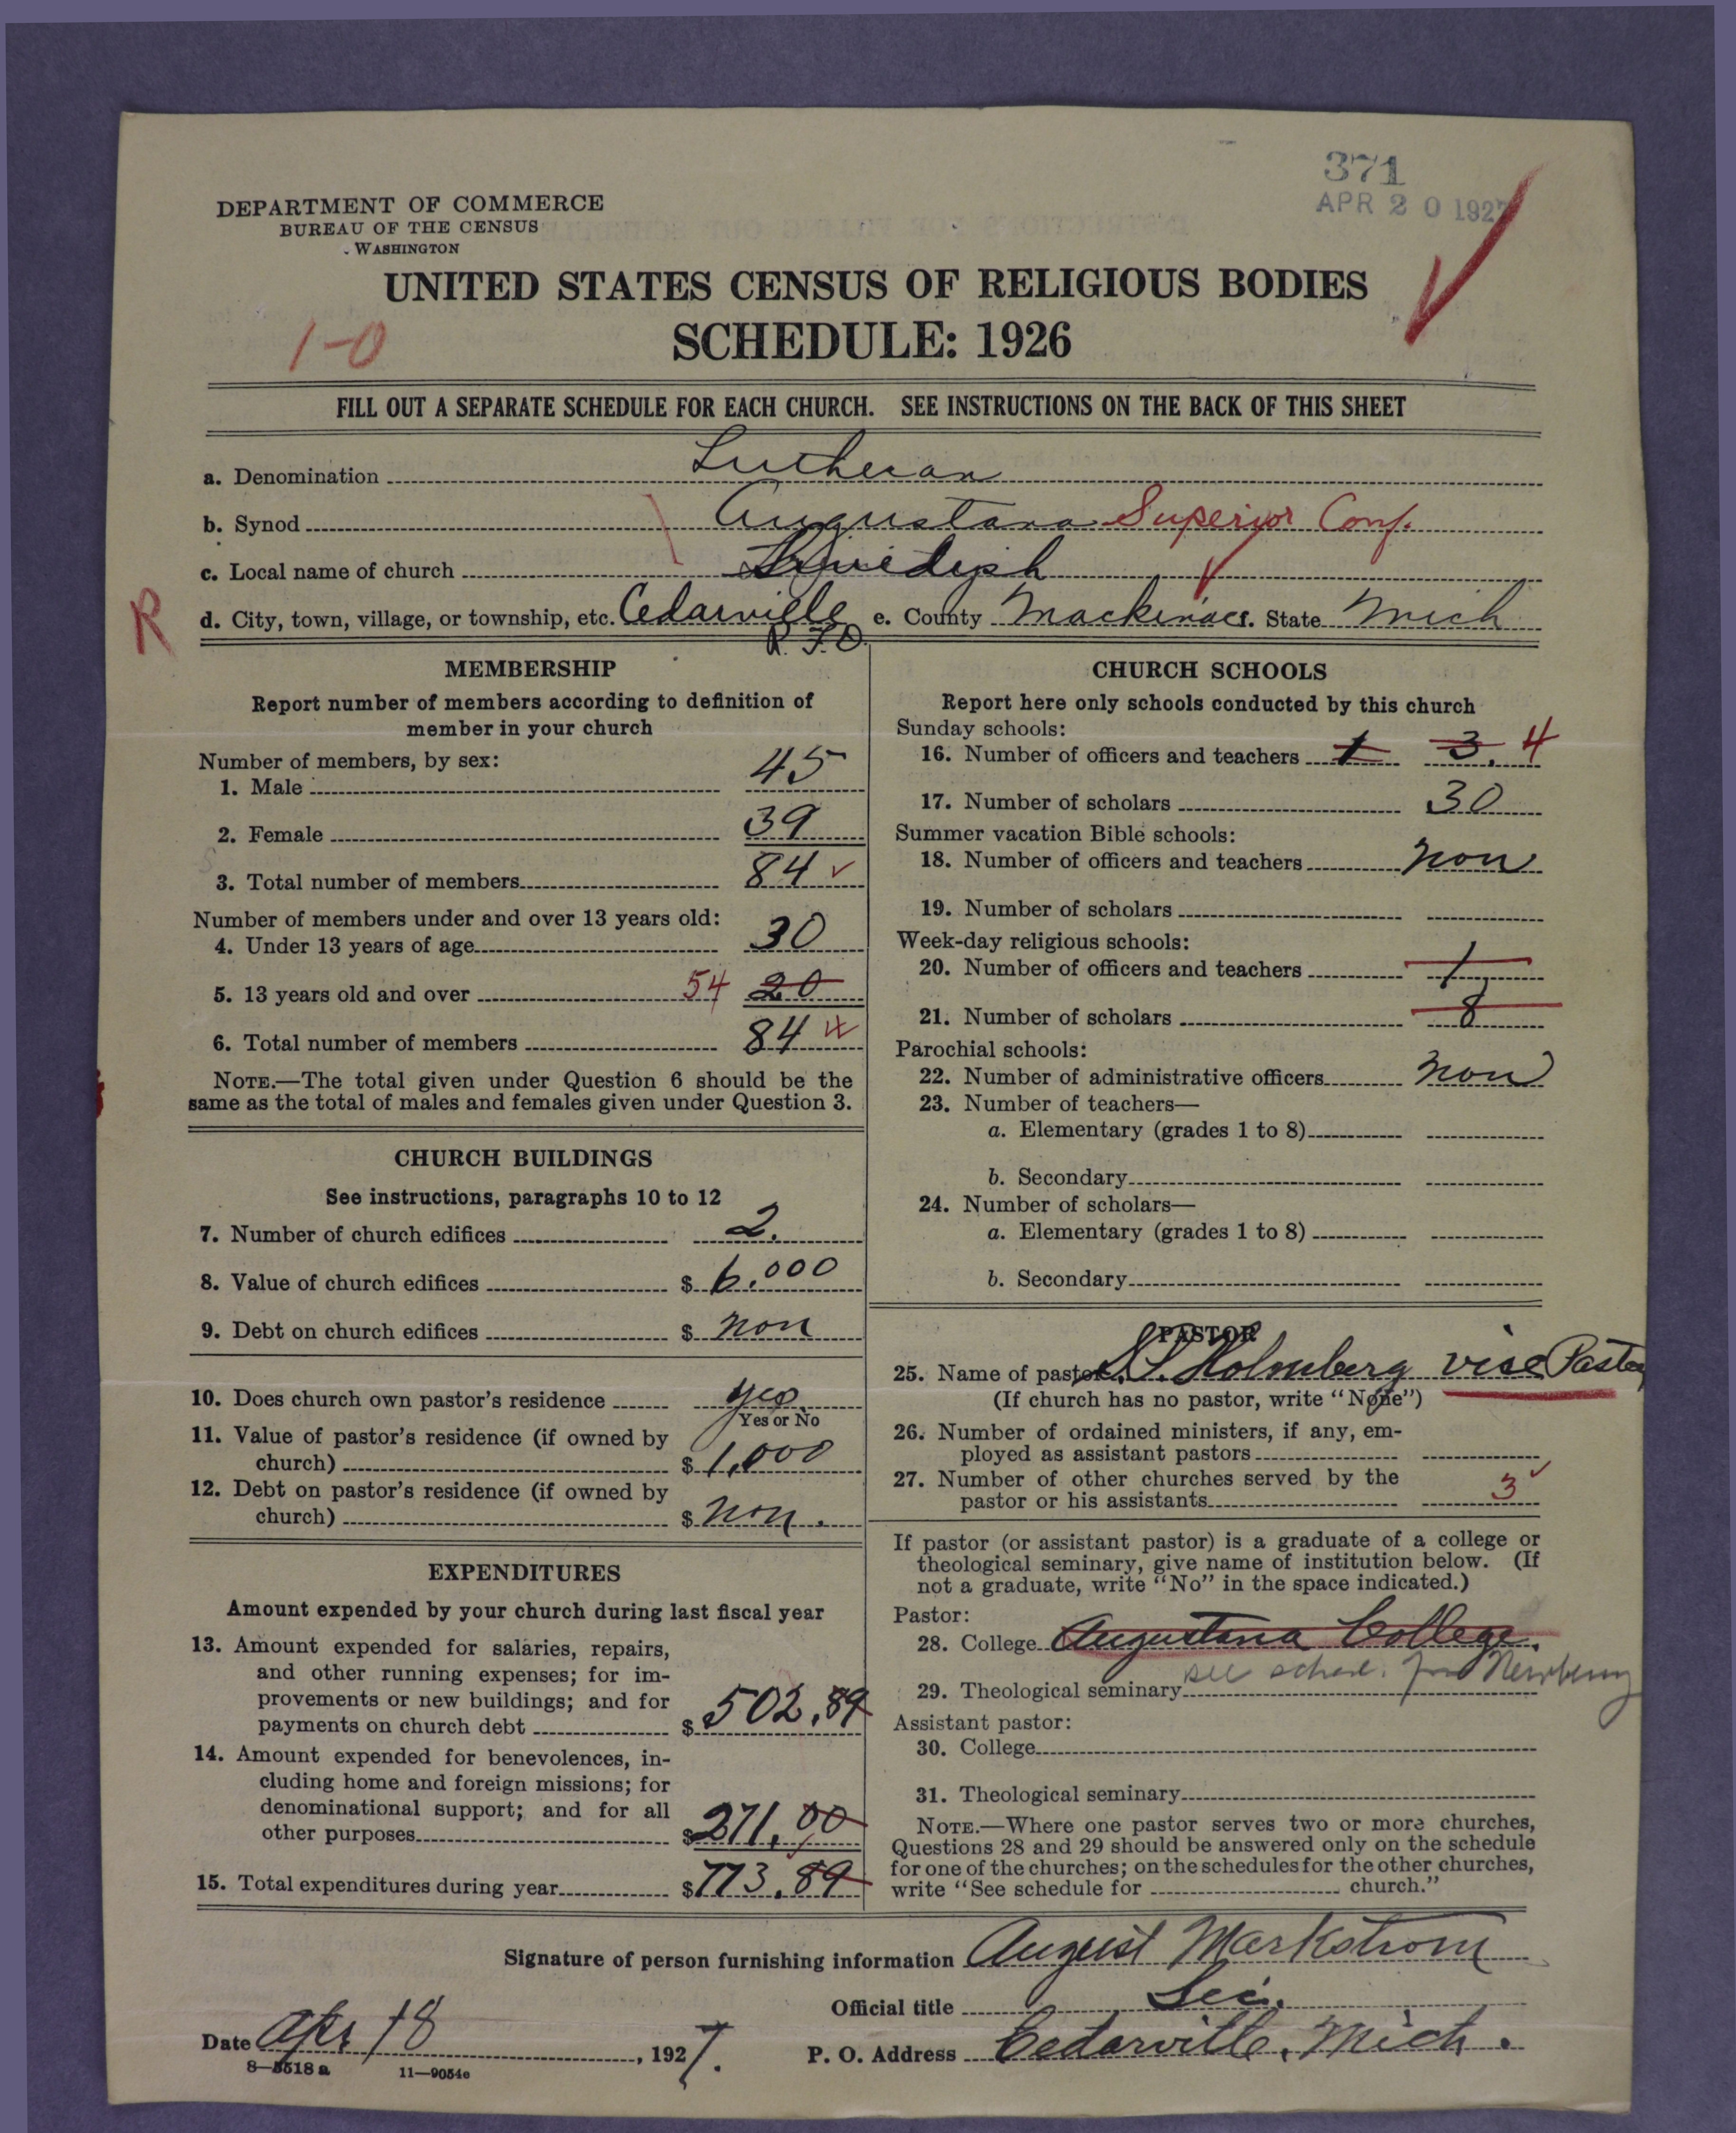 371
APR 20 1927
DEPARTMENT OF COMMERCE
BUREAU OF THE CENSUS
WASHINGTON
UNITED STATES CENSUS OF RELIGIOUS BODIES
1-0
SCHEDULE: 1926
FILL OUT A SEPARATE SCHEDULE FOR EACH CHURCH. SEE INSTRUCTIONS ON THE BACK OF THIS SHEET
a. Denomination Lutheran
b. Synod Augustana Superior Conf.
c. Local name of church Swedish
R d. City, town, village, or township, etc. Cedarville e. County Mackinac f. State Mich
R. F. D.
MEMBERSHIP
Report number of members according to definition of
member in your church
Number of members, by sex:
1. Male 45
2. Female 39
3. Total number of members 84
Number of members under and over 13 years old:
4. Under 13 years of age 30
5. 13 years old and over 54 20
6. Total number of members 84
NOTE.—The total given under Question 6 should be the
same as the total of males and females given under Question 3.
CHURCH BUILDINGS
See instructions, paragraphs 10 to 12
7. Number of church edifices 2.
8. Value of church edifices $ 6.000
9. Debt on church edifices $ non
10. Does church own pastor's residence yes
Yes or No
11. Value of pastor's residence (if owned by
church) $ 1,000
12. Debt on pastor's residence (if owned by
church) $ non.
EXPENDITURES
Amount expended by your church during last fiscal year
13. Amount expended for salaries, repairs,
and other running expenses; for im-
provements or new buildings; and for
payments on church debt $ 502.89
14. Amount expended for benevolences, in-
cluding home and foreign missions; for
denominational support; and for all
other purposes $ 271.00
15. Total expenditures during year $ 773.89
CHURCH SCHOOLS
Report here only schools conducted by this church
Sunday schools:
16. Number of officers and teachers 1 3. 4
17. Number of scholars 30
Summer vacation Bible schools:
18. Number of officers and teachers non
19. Number of scholars
Week-day religious schools:
20. Number of officers and teachers 1
21. Number of scholars 8
Parochial schools:
22. Number of administrative officers non
23. Number of teachers—
a. Elementary (grades 1 to 8)
b. Secondary
24. Number of scholars—
a. Elementary (grades 1 to 8)
b. Secondary
PASTOR
25. Name of pastor Holmberg vise Pastor
(If church has no pastor, write "None")
26. Number of ordained ministers, if any, em-
ployed as assistant pastors
27. Number of other churches served by the
pastor or his assistants 3
If pastor (or assistant pastor) is a graduate of a college or
theological seminary, give name of institution below. (If
not a graduate, write "No" in the space indicated.)
Pastor:
28. College Augustana College.
see sched. for Newberry
29. Theological seminary
Assistant pastor:
30. College
31. Theological seminary
NOTE.—Where one pastor serves two or more churches,
Questions 28 and 29 should be answered only on the schedule
for one of the churches; on the schedules for the other churches,
write "See schedule for church."
Signature of person furnishing information August Markstrom
Official title Sec.
Date Apr 18, 1927.
P. O. Address Cedarville, Mich.
8—5518 a 11—9054e